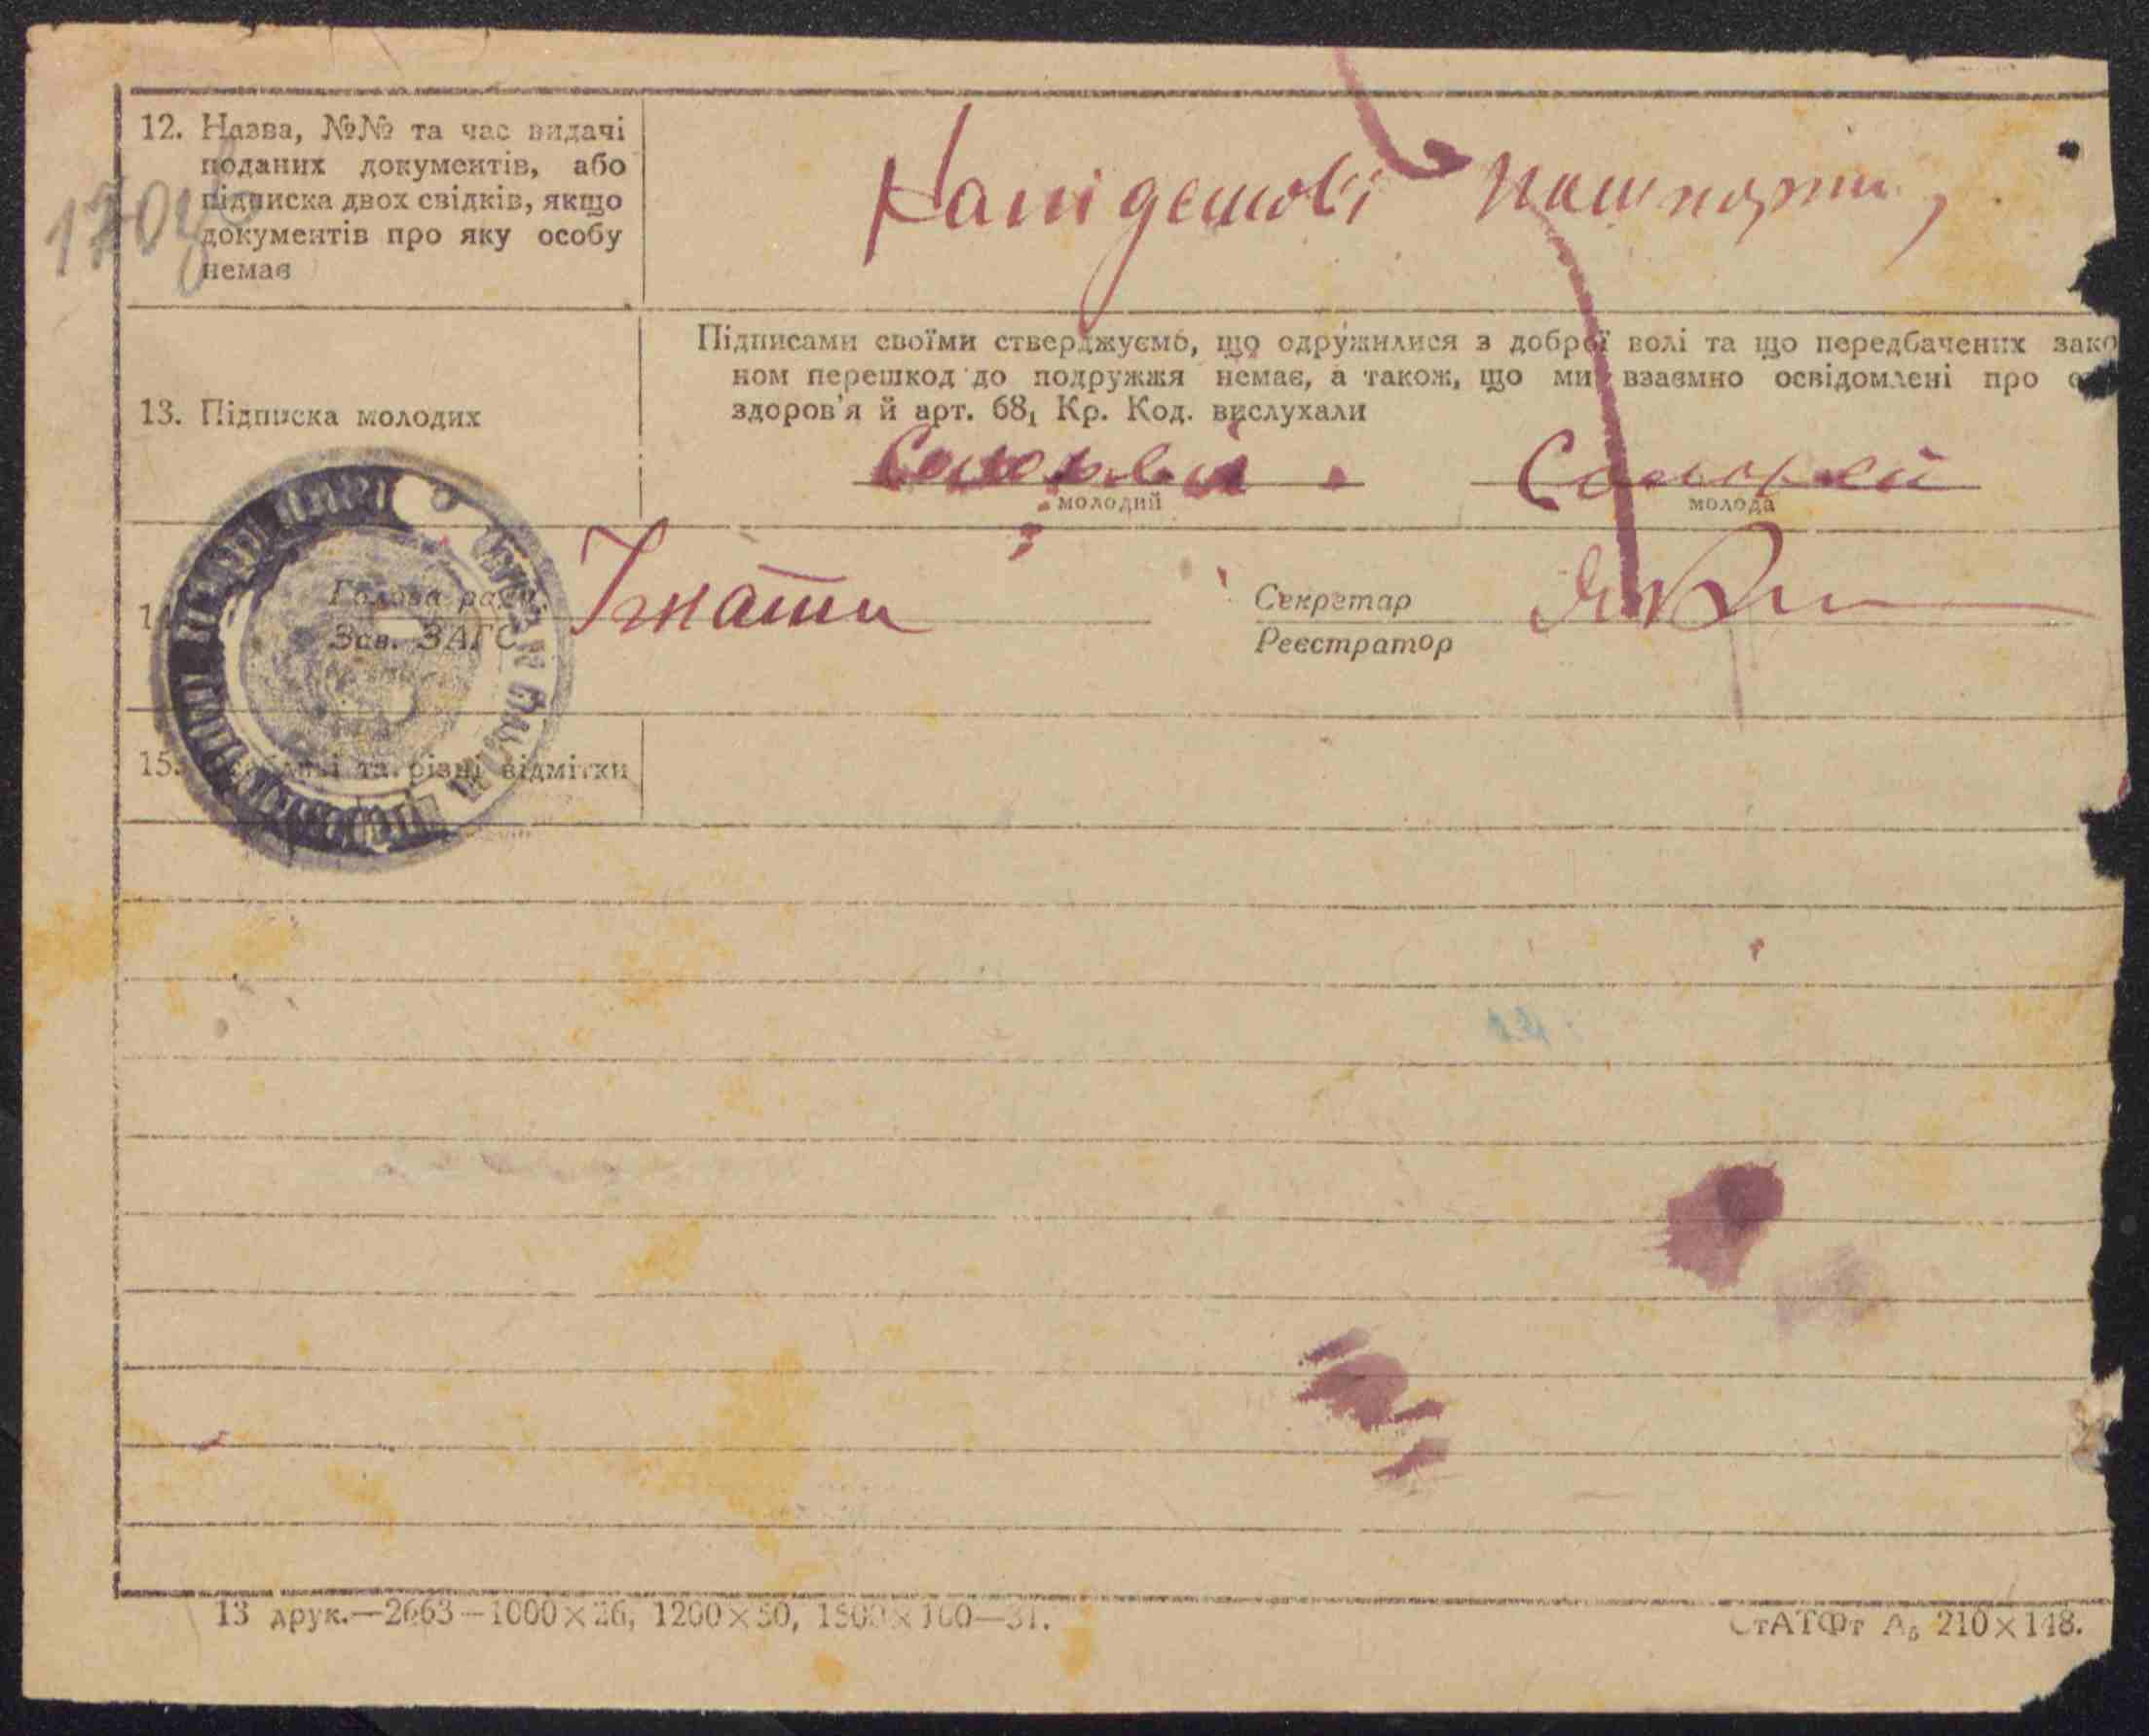 12. Назва, №№ та час видачі
поданих документів, або
підписка двох свідків, якщо
документів про яку особу
немає
пашпорти,
Підписами своїми стверджуємо, що одружилися з доброї волі та що передбачених зако
ном перешкод до подружжя немає, а також, що ми взаємно освідомлені про
здоров'я й арт. 68₁ Кр. Код. вислухали
13. Підписка молодих
Соловей
Соловей
молодий
молода
Голова ради
Зав. ЗАГС
Ігнати
Секретар
Реєстратор
15. та різні відмітки
13 друк.—2663—1000×26, 1200×50, 1500×100—31.
СтАТФт А₅ 210×148.